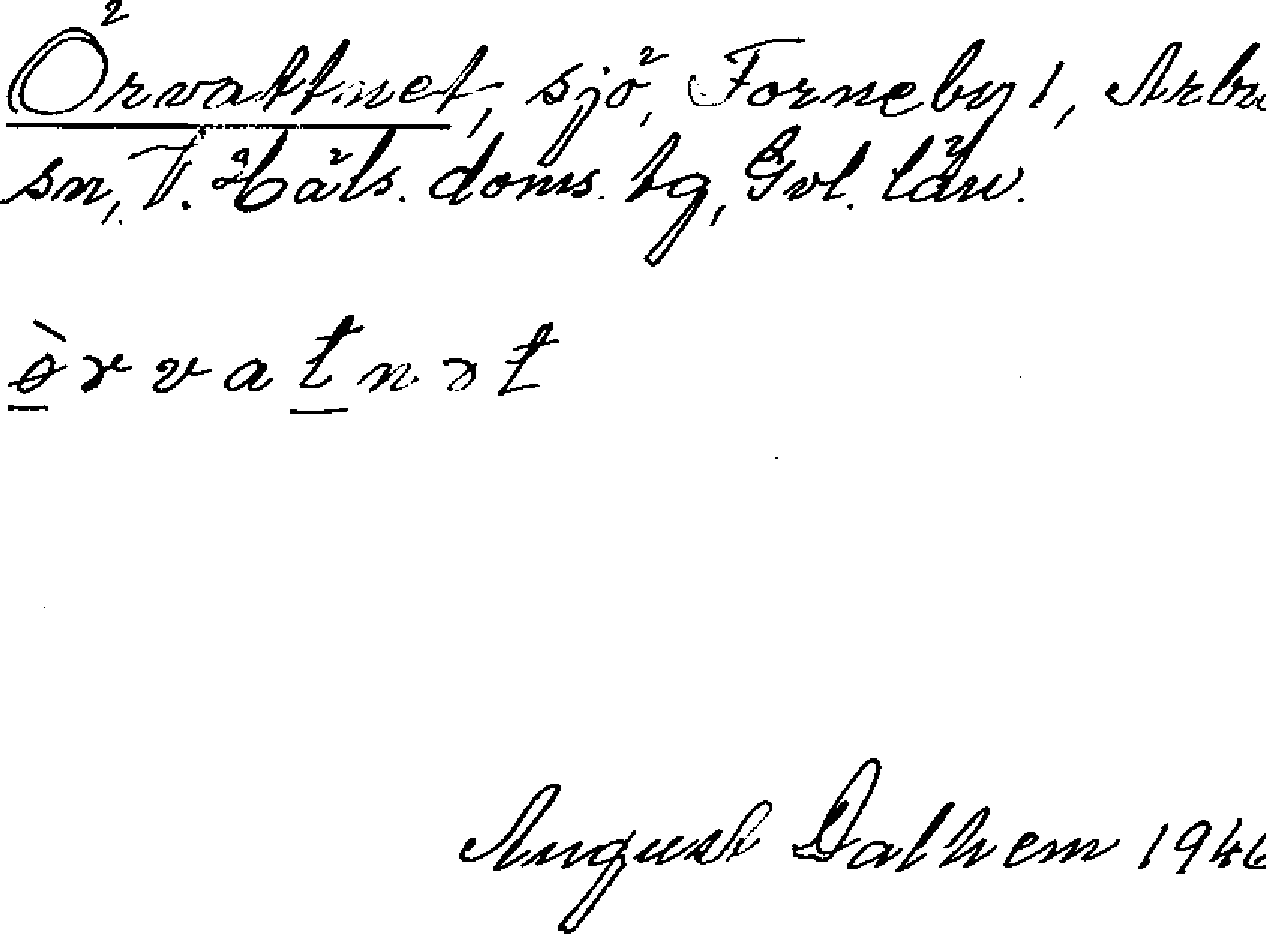 Örvattnet, sjö, Forneby 1, Arbrå
sn, V. Häls. doms. tg, Gvl. län.
ö̀rvatnət
August Dalhem 1946